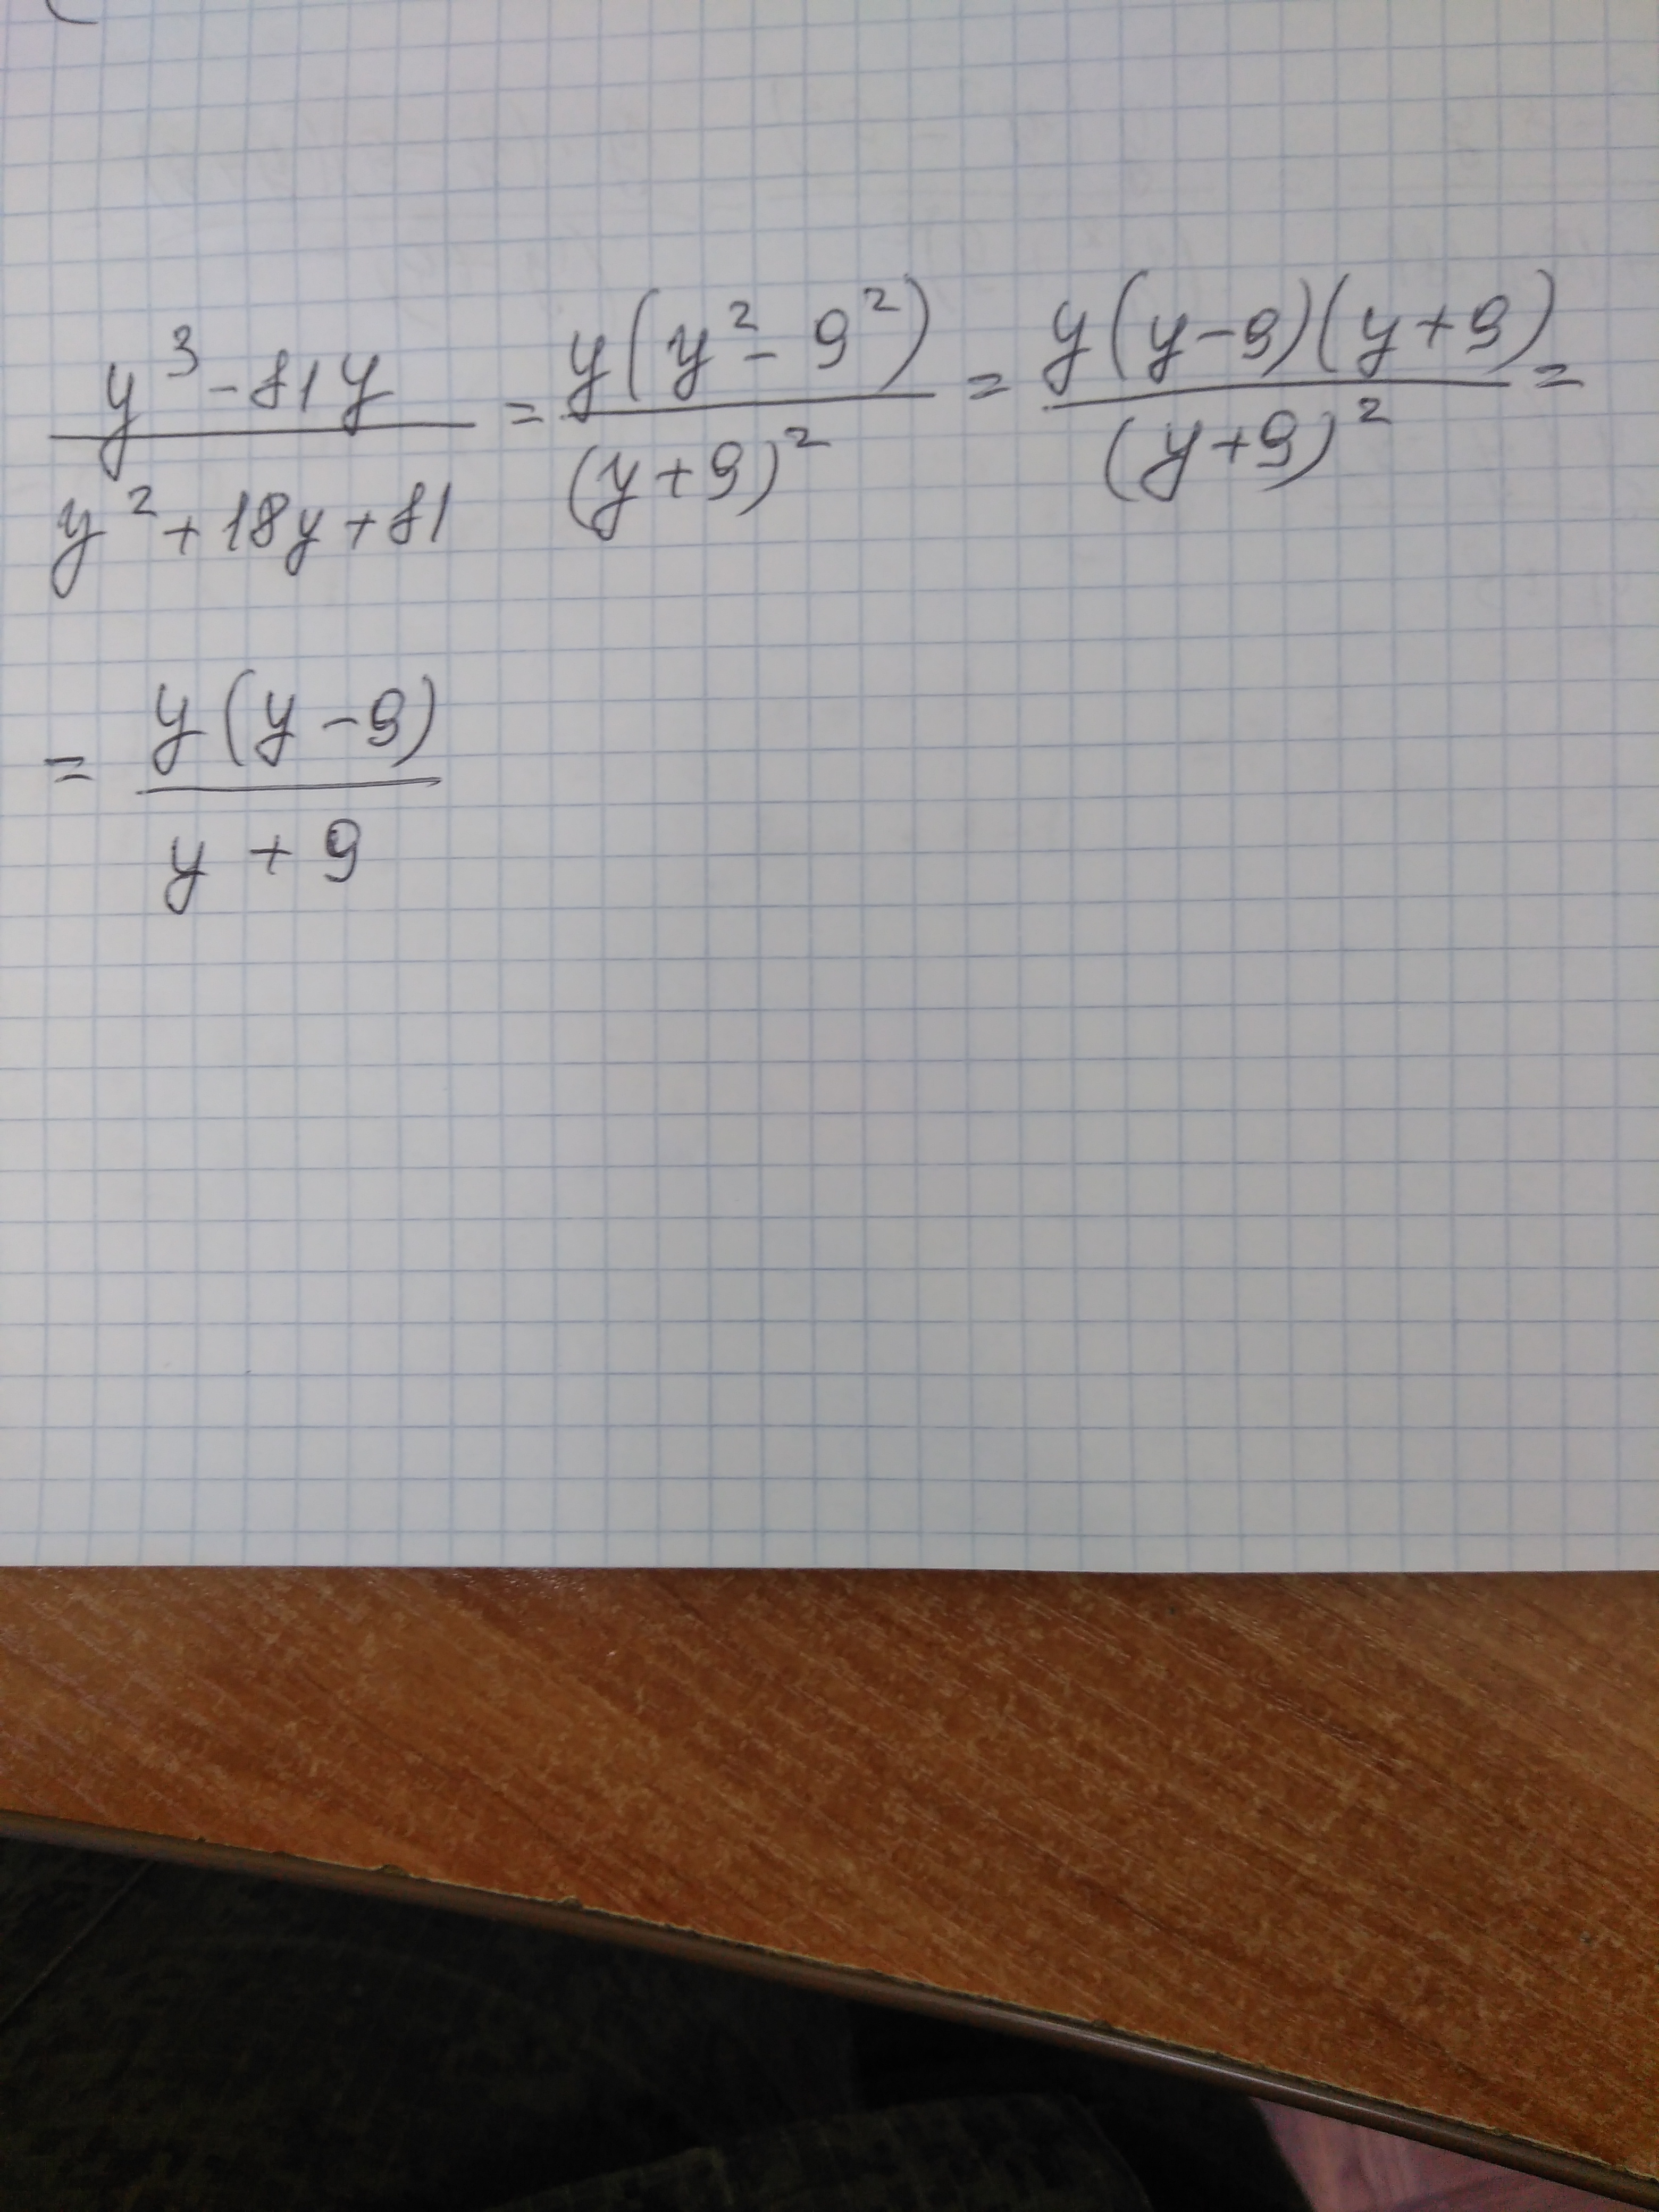 (y³ - 81y)/(y² + 18y + 81) = y(y² - 9²)/(y+9)² = y(y-9)(y+9)/(y+9)² =
= y(y-9)/(y + 9)